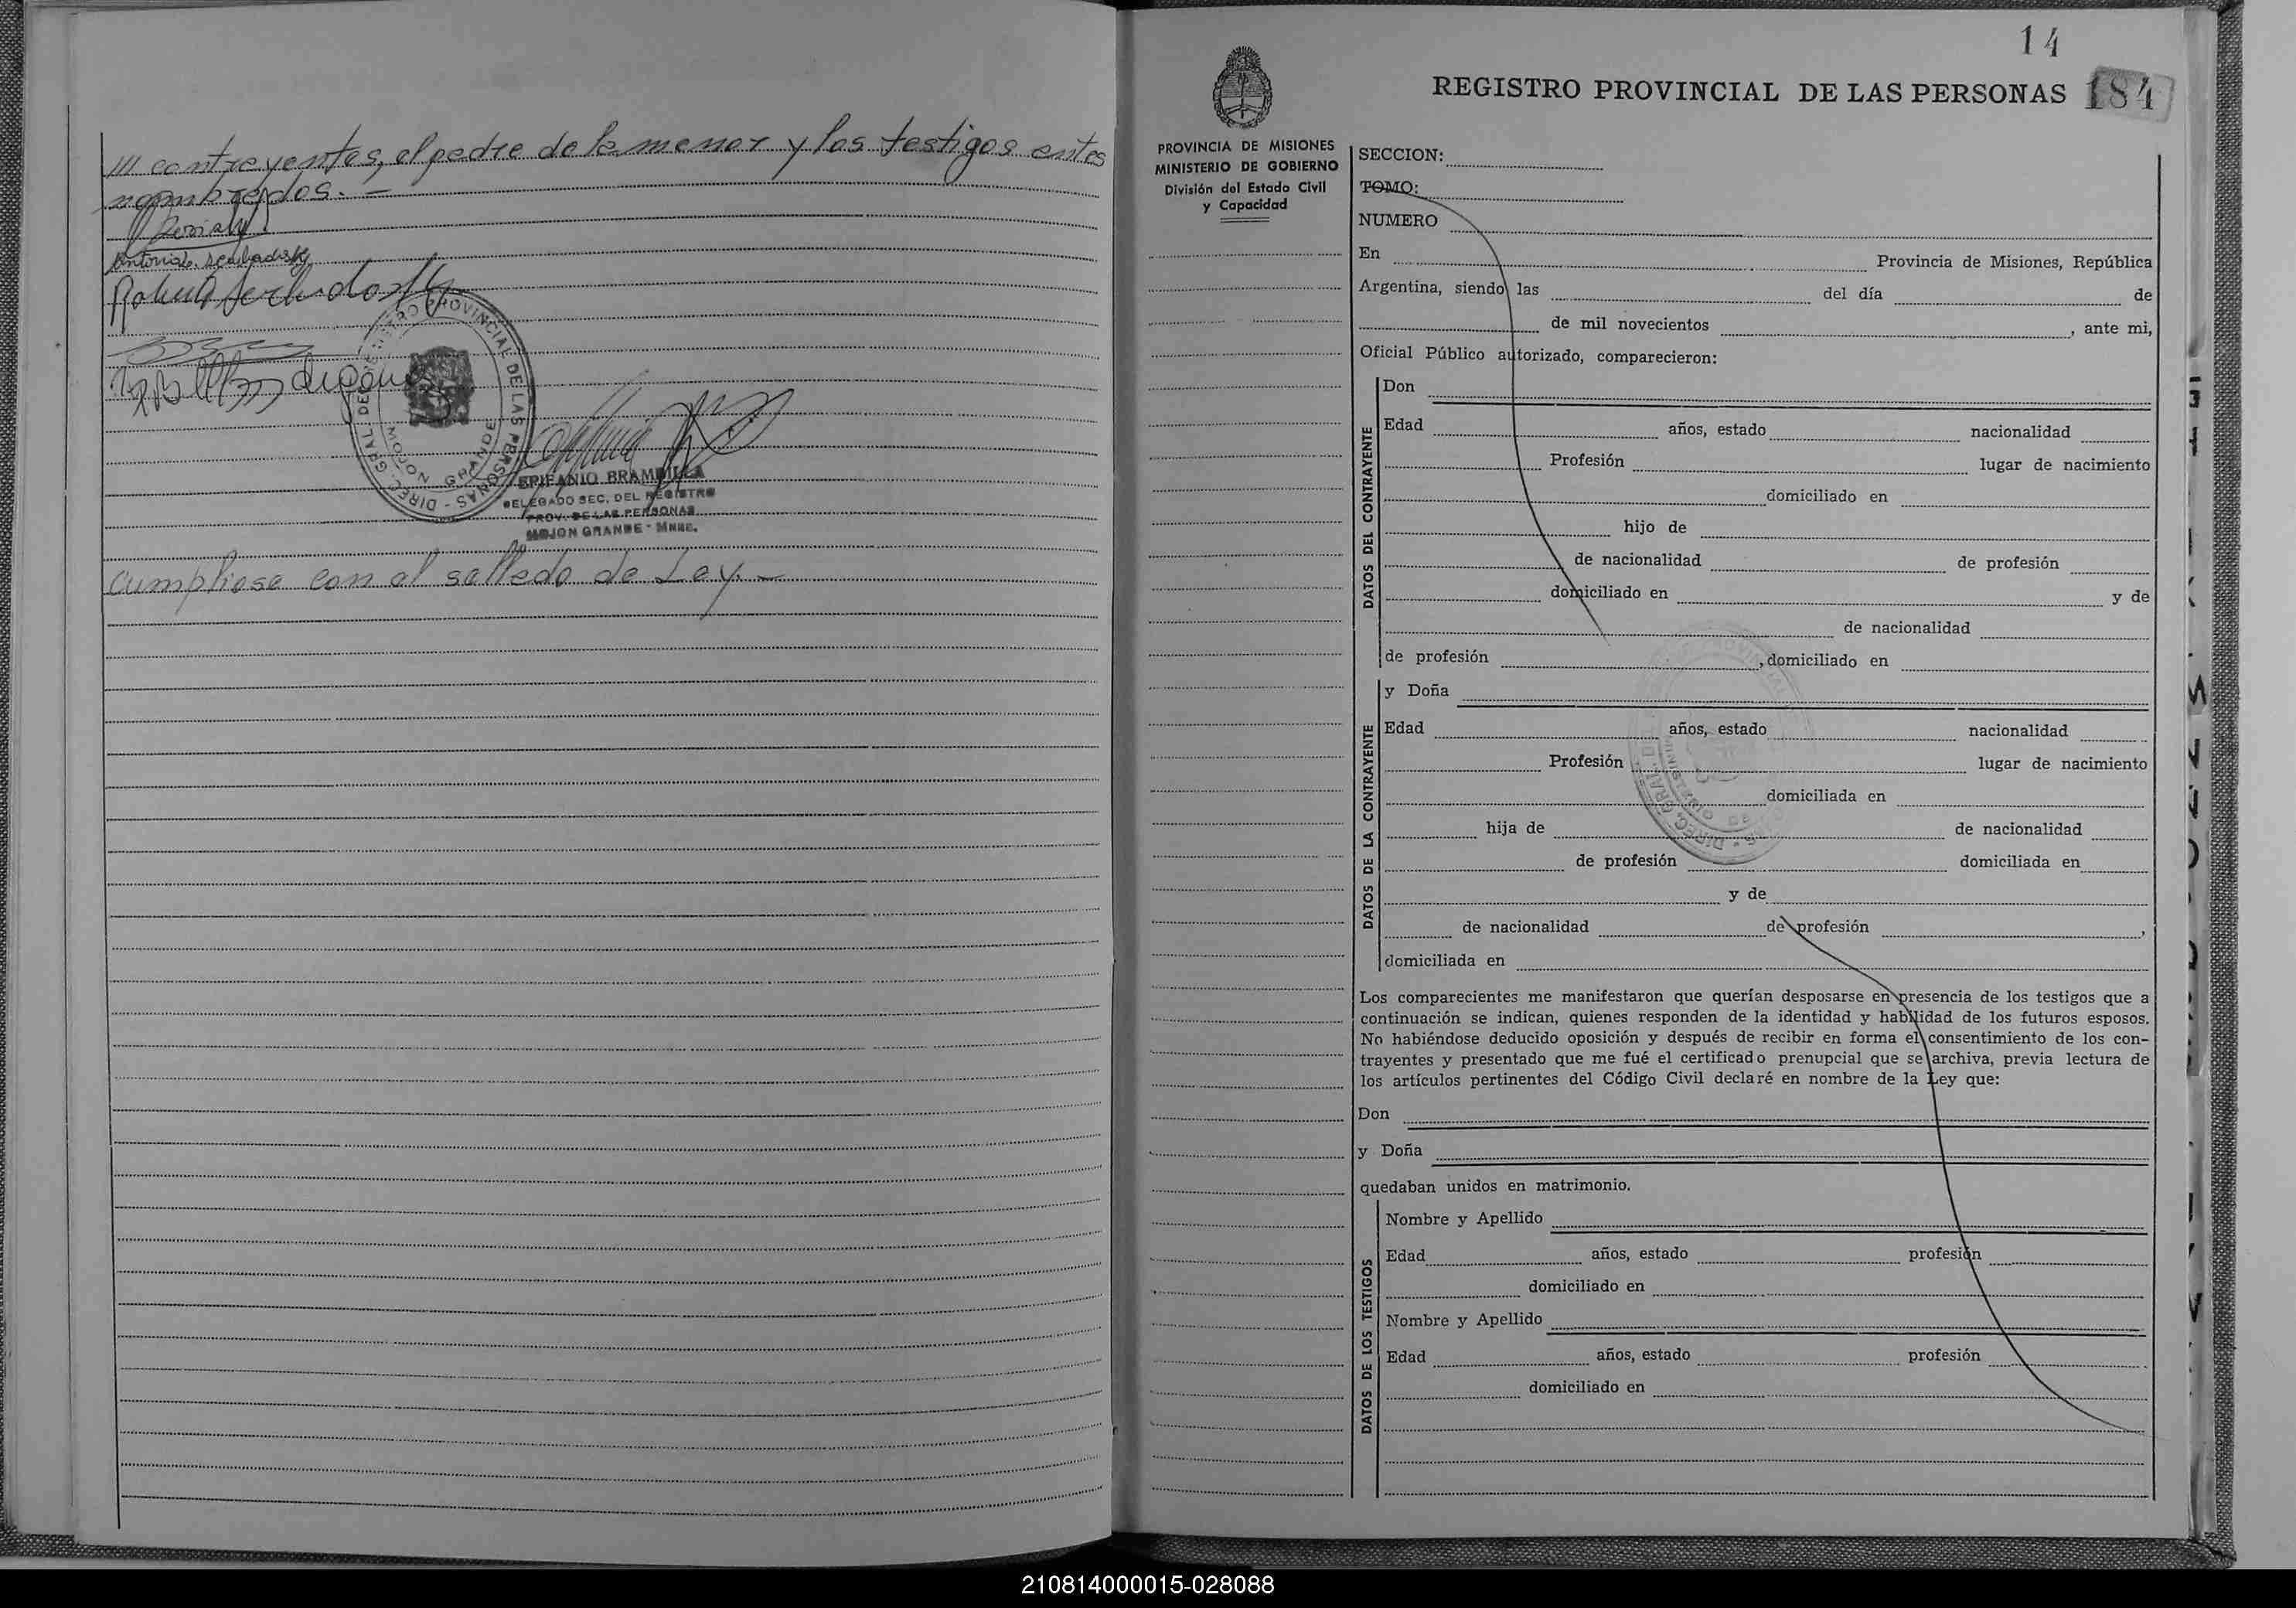 /// contrayentes, el padre de la menor y los testigos antes
nombrados. —
DIREC. GRAL. DEL REGISTRO PROVINCIAL DE LAS PERSONAS -
MOJON GRANDE
EPIFANIO BRAMBILLA
DELEGADO SEC. DEL REGISTRO
PROV. DE LAS PERSONAS
MOJON GRANDE - Mnes.
cumpliose con el sellado de Ley. —
14
REGISTRO PROVINCIAL DE LAS PERSONAS 184
PROVINCIA DE MISIONES
MINISTERIO DE GOBIERNO
División del Estado Civil
y Capacidad
SECCION:
TOMO:
NUMERO
En Provincia de Misiones, República
Argentina, siendo las del día de
de mil novecientos , ante mi,
Oficial Público autorizado, comparecieron:
DATOS DEL CONTRAYENTE
Don
Edad años, estado nacionalidad
Profesión lugar de nacimiento
domiciliado en
hijo de
de nacionalidad de profesión
domiciliado en y de
de nacionalidad
de profesión , domiciliado en
DATOS DE LA CONTRAYENTE
y Doña
Edad años, estado nacionalidad
Profesión lugar de nacimiento
domiciliada en
hija de de nacionalidad
de profesión domiciliada en
y de
de nacionalidad de profesión ,
domiciliada en
Los comparecientes me manifestaron que querían desposarse en presencia de los testigos que a
continuación se indican, quienes responden de la identidad y habilidad de los futuros esposos.
No habiéndose deducido oposición y después de recibir en forma el consentimiento de los con-
trayentes y presentado que me fué el certificado prenupcial que se archiva, previa lectura de
los artículos pertinentes del Código Civil declaré en nombre de la Ley que:
Don
y Doña
quedaban unidos en matrimonio.
DATOS DE LOS TESTIGOS
Nombre y Apellido
Edad años, estado profesión
domiciliado en
Nombre y Apellido
Edad años, estado profesión
domiciliado en
210814000015-028088